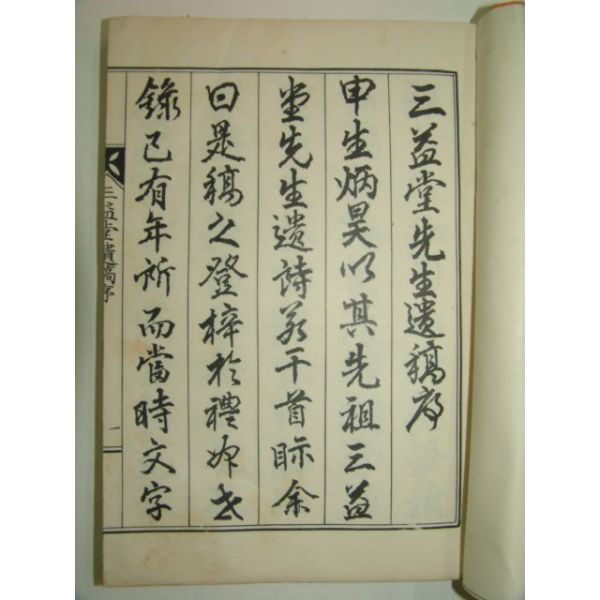 三益堂先生遺稿序
申生炳昊以其先祖三益
堂先生遺詩若干首眎余
曰是稿之登梓於禮州古
錄已有年所而當時文字
三益堂遺稿序
一